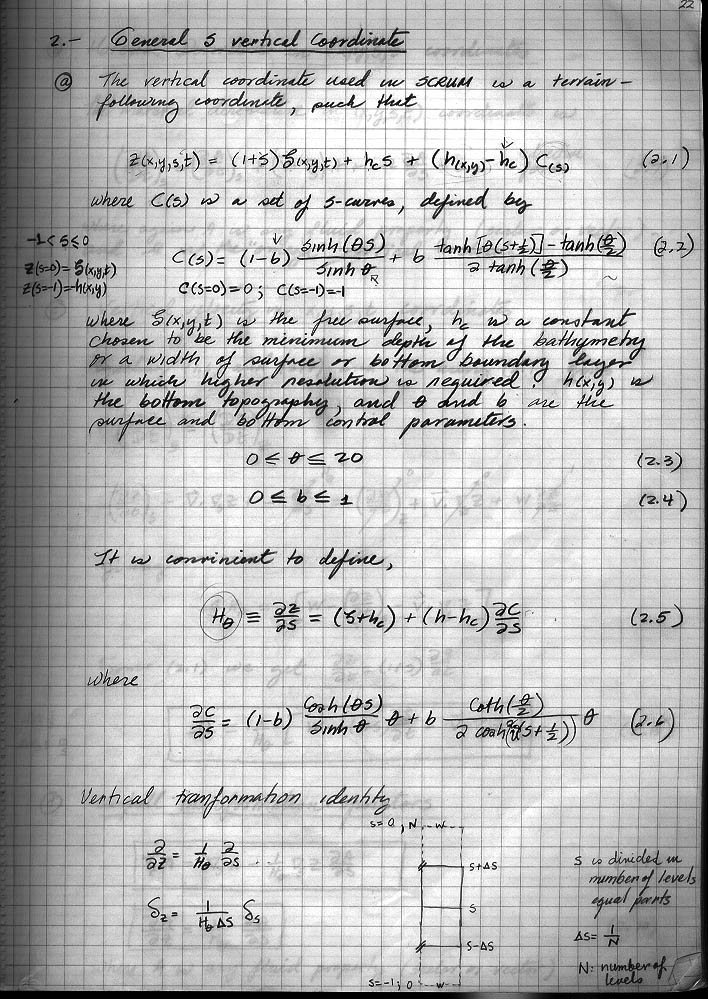 22
2.- General s vertical coordinate
(a) The vertical coordinate used in SCRUM is a terrain-
following coordinate, such that
z(x,y,s,t) = (1+s) ζ(x,y,t) + h_c s + (h(x,y) - h_c) C(s) (2.1)
where C(s) is a set of s-curves, defined by
-1 < s ≤ 0
z(s=0) = ζ(x,y,t)
z(s=-1) = -h(x,y)
C(s) = (1-b) sinh(θs)/sinh θ + b (tanh[θ(s+1/2)] - tanh(θ/2))/(2 tanh(θ/2)) (2.2)
C(s=0)=0 ; C(s=-1)=-1
where ζ(x,y,t) is the free surface, h_c is a constant
chosen to be the minimum depth of the bathymetry
or a width of surface or bottom boundary layer
in which higher resolution is required; h(x,y) is
the bottom topography, and θ and b are the
surface and bottom control parameters.
0 ≤ θ ≤ 20 (2.3)
0 ≤ b ≤ 1 (2.4)
It is convinient to define,
H_θ ≡ ∂z/∂s = (ζ+h_c) + (h-h_c) ∂C/∂s (2.5)
where
∂C/∂s = (1-b) Cosh(θs)/Sinh θ θ + b Coth(θ/2)/(2 cosh²(θ(s+1/2))) θ (2.6)
Vertical tranformation identity
∂/∂z = 1/H_θ ∂/∂s
δ_z = 1/(H_θ Δs) δ_s
s=0, N --w--
s+Δs
s
s-Δs
s=-1; 0 --w--
s is divided in
number of levels
equal parts
Δs = 1/N
N: number of
levels